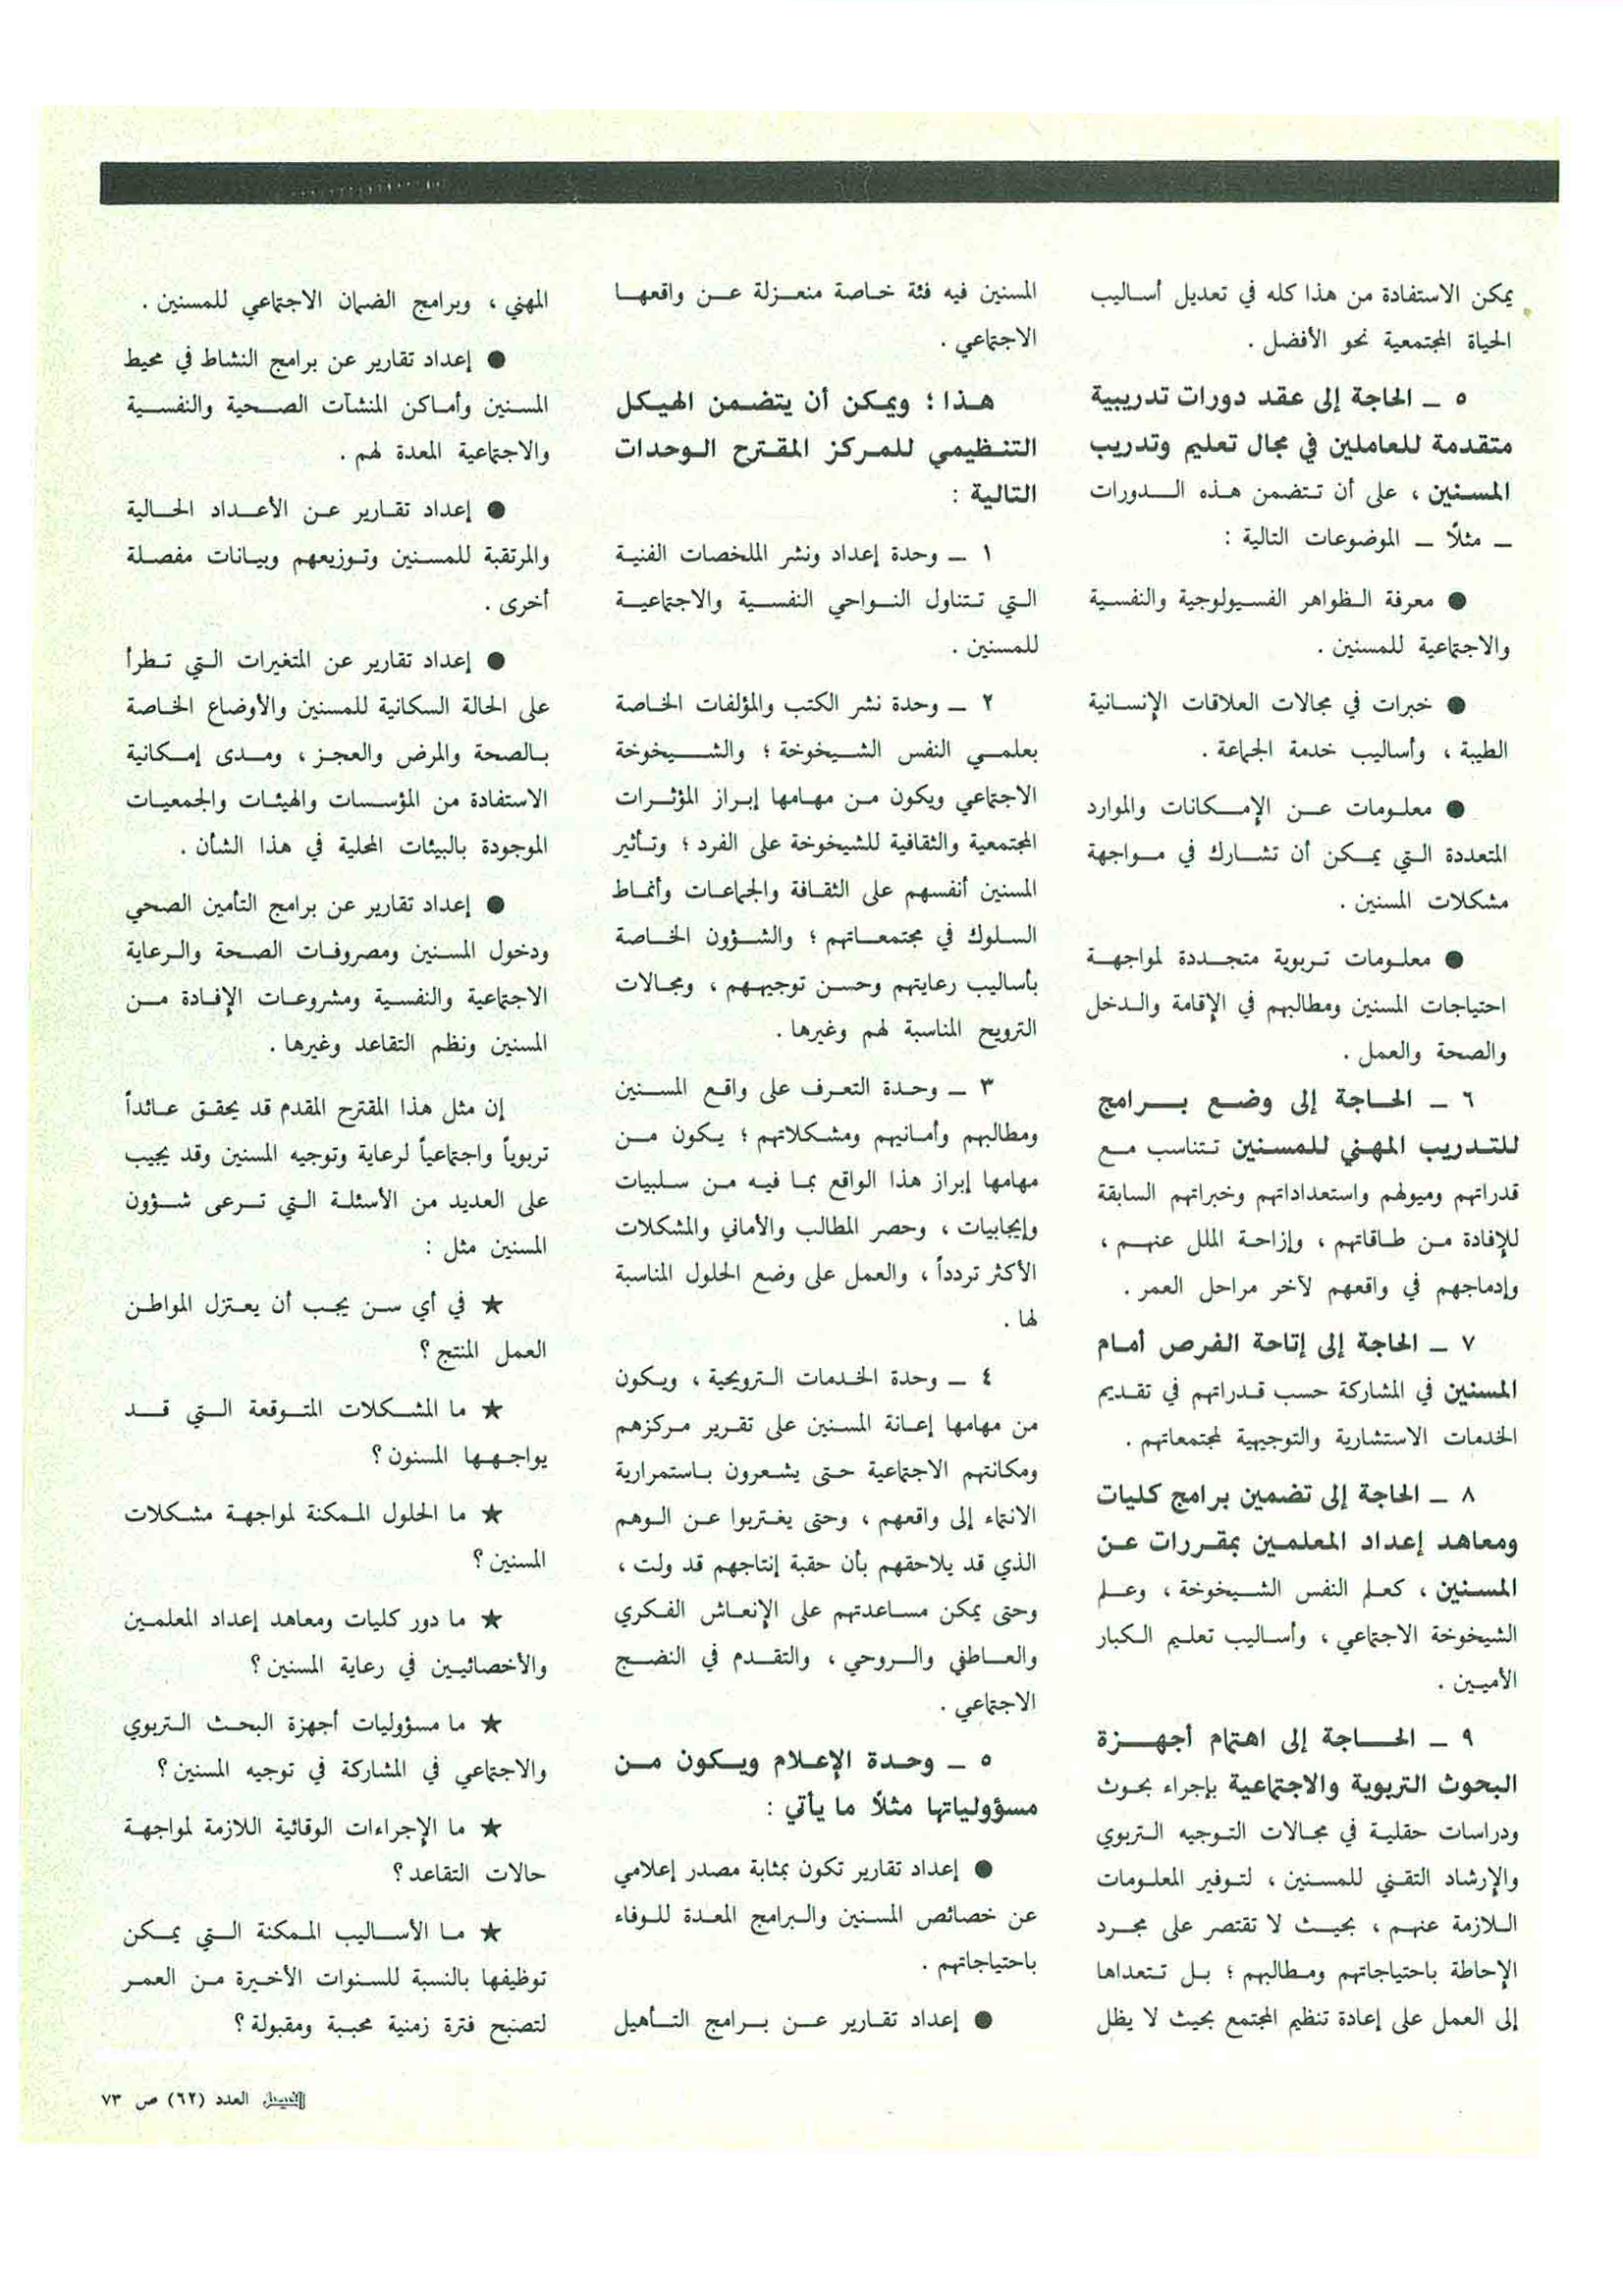 يمكن الاستفادة من هذا كله في تعديل أساليب
الحياة المجتمعية نحو الأفضل .
٥ ــ الحاجة إلى عقد دورات تدريبية
متقدمة للعاملين في مجال تعليم وتدريب
المسنين ، على أن تتضمن هذه الدورات
ــ مثلاً ــ الموضوعات التالية :
● معرفة الظواهر الفسيولوجية والنفسية
والاجتماعية للمسنين .
● خبرات في مجالات العلاقات الإنسانية
الطيبة ، وأساليب خدمة الجماعة .
● معلومات عن الإمكانات والموارد
المتعددة التي يمكن أن تشارك في مواجهة
مشكلات المسنين .
● معلومات تربوية متجددة لمواجهة
احتياجات المسنين ومطالبهم في الإقامة والدخل
والصحة والعمل .
٦ ــ الحاجة إلى وضع برامج
للتدريب المهني للمسنين تتناسب مع
قدراتهم وميولهم واستعداداتهم وخبراتهم السابقة
للإفادة من طاقاتهم ، وإزاحة الملل عنهم ،
وإدماجهم في واقعهم لآخر مراحل العمر .
٧ ــ الحاجة إلى إتاحة الفرص أمام
المسنين في المشاركة حسب قدراتهم في تقديم
الخدمات الاستشارية والتوجيهية لمجتمعاتهم .
٨ ــ الحاجة إلى تضمين برامج كليات
ومعاهد إعداد المعلمين بمقررات عن
المسنين ، كعلم النفس الشيخوخة ، وعلم
الشيخوخة الاجتماعي ، وأساليب تعليم الكبار
الأميين .
٩ ــ الحاجة إلى اهتمام أجهزة
البحوث التربوية والاجتماعية بإجراء بحوث
ودراسات حقلية في مجالات التوجيه التربوي
والإرشاد التقني للمسنين ، لتوفير المعلومات
اللازمة عنهم ، بحيث لا تقتصر على مجرد
الإحاطة باحتياجاتهم ومطالبهم ؛ بل تتعداها
إلى العمل على إعادة تنظيم المجتمع بحيث لا يظل
المسنين فيه فئة خاصة منعزلة عن واقعها
الاجتماعي .
هذا ؛ ويمكن أن يتضمن الهيكل
التنظيمي للمركز المقترح الوحدات
التالية :
١ ــ وحدة إعداد ونشر الملخصات الفنية
التي تتناول النواحي النفسية والاجتماعية
للمسنين .
٢ ــ وحدة نشر الكتب والمؤلفات الخاصة
بعلمي النفس الشيخوخة ؛ والشيخوخة
الاجتماعي ويكون من مهامها إبراز المؤثرات
المجتمعية والثقافية للشيخوخة على الفرد ؛ وتأثير
المسنين أنفسهم على الثقافة والجماعات وأنماط
السلوك في مجتمعاتهم ؛ والشؤون الخاصة
بأساليب رعايتهم وحسن توجيههم ، ومجالات
الترويح المناسبة لهم وغيرها .
٣ ــ وحدة التعرف على واقع المسنين
ومطالبهم وأمانيهم ومشكلاتهم ؛ يكون من
مهامها إبراز هذا الواقع بما فيه من سلبيات
وإيجابيات ، وحصر المطالب والأماني والمشكلات
الأكثر تردداً ، والعمل على وضع الحلول المناسبة
لها .
٤ ــ وحدة الخدمات الترويحية ، ويكون
من مهامها إعانة المسنين على تقرير مركزهم
ومكانتهم الاجتماعية حتى يشعرون باستمرارية
الانتماء إلى واقعهم ، وحتى يغتربوا عن الوهم
الذي قد يلاحقهم بأن حقبة إنتاجهم قد ولت ،
وحتى يمكن مساعدتهم على الإنعاش الفكري
والعاطفي والروحي ، والتقدم في النضج
الاجتماعي .
٥ ــ وحدة الإعلام ويكون من
مسؤولياتها مثلاً ما يأتي :
● إعداد تقارير تكون بمثابة مصدر إعلامي
عن خصائص المسنين والبرامج المعدة للوفاء
باحتياجاتهم .
● إعداد تقارير عن برامج التأهيل
المهني ، وبرامج الضمان الاجتماعي للمسنين .
● إعداد تقارير عن برامج النشاط في محيط
المسنين وأماكن المنشآت الصحية والنفسية
والاجتماعية المعدة لهم .
● إعداد تقارير عن الأعداد الحالية
والمرتقبة للمسنين وتوزيعهم وبيانات مفصلة
أخرى .
● إعداد تقارير عن المتغيرات التي تطرأ
على الحالة السكانية للمسنين والأوضاع الخاصة
بالصحة والمرض والعجز ، ومدى إمكانية
الاستفادة من المؤسسات والهيئات والجمعيات
الموجودة بالبيئات المحلية في هذا الشأن .
● إعداد تقارير عن برامج التأمين الصحي
ودخول المسنين ومصروفات الصحة والرعاية
الاجتماعية والنفسية ومشروعات الإفادة من
المسنين ونظم التقاعد وغيرها .
إن مثل هذا المقترح المقدم قد يحقق عائداً
تربوياً واجتماعياً لرعاية وتوجيه المسنين وقد يجيب
على العديد من الأسئلة التي ترعى شؤون
المسنين مثل :
★ في أي سن يجب أن يعتزل المواطن
العمل المنتج ؟
★ ما المشكلات المتوقعة التي قد
يواجهها المسنون ؟
★ ما الحلول الممكنة لمواجهة مشكلات
المسنين ؟
★ ما دور كليات ومعاهد إعداد المعلمين
والأخصائيين في رعاية المسنين ؟
★ ما مسؤوليات أجهزة البحث التربوي
والاجتماعي في المشاركة في توجيه المسنين ؟
★ ما الإجراءات الوقائية اللازمة لمواجهة
حالات التقاعد ؟
★ ما الأساليب الممكنة التي يمكن
توظيفها بالنسبة للسنوات الأخيرة من العمر
لتصبح فترة زمنية محببة ومقبولة ؟
الفيصل العدد (٦٢) ص ٧٣